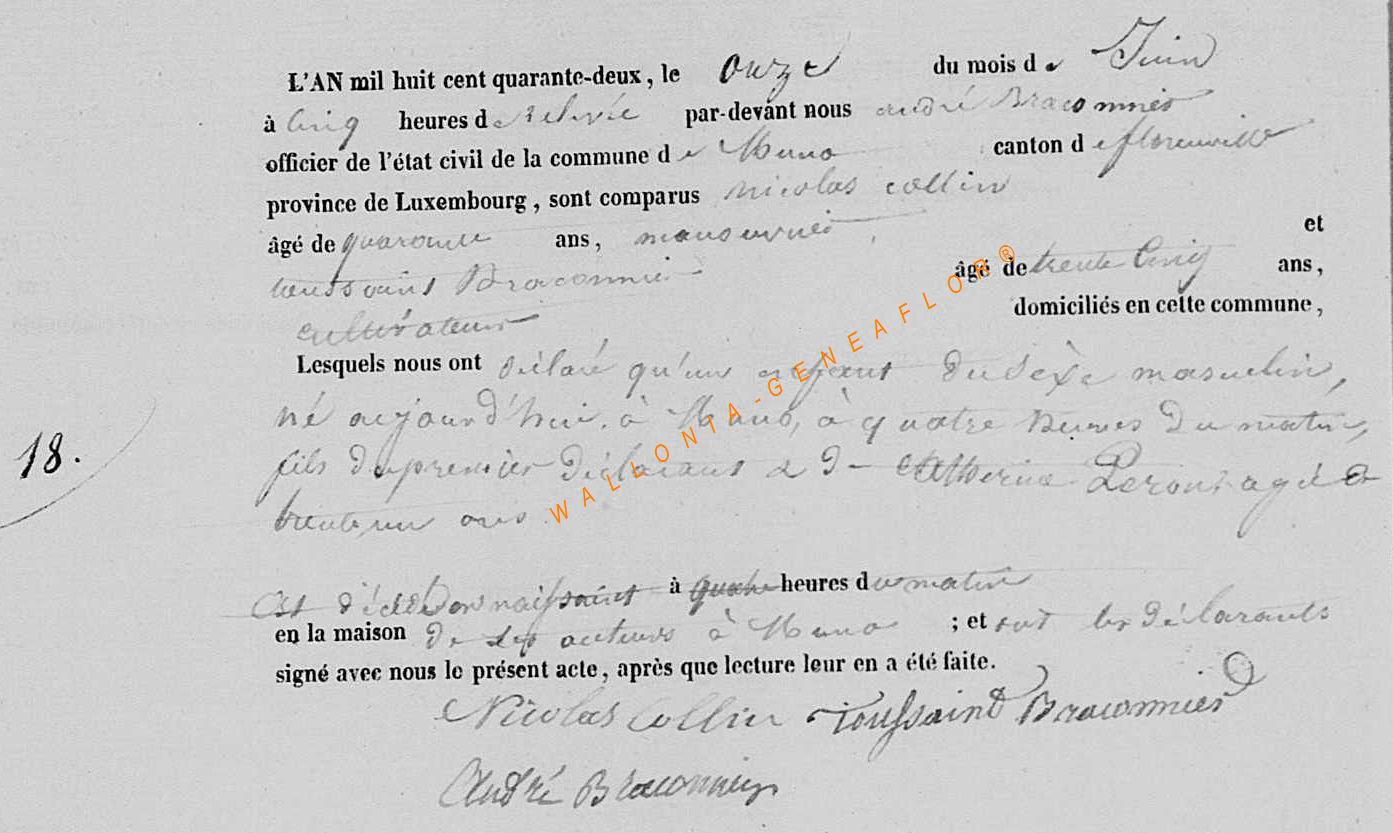 L'AN mil huit cent quarante-deux, le onze du mois de Juin
à Cinq heures de relevée par-devant nous andré Braconnier
officier de l'état civil de la commune de Muno canton de florenville
province de Luxembourg, sont comparus nicolas collin
âgé de quarante ans, manoeuvrier, et
toussaint Braconnier âgé de trente Cinq ans,
cultivateur domiciliés en cette commune,
Lesquels nous ont déclaré qu'un enfant du sexe masculin,
18. né aujourd'hui, à Muno, à quatre heures du matin,
fils du premier déclarant & d Catherine agée de
trente un ans
WALLONIA-GENEAFLOR®
Est décédé en naissant à quatre heures du matin
en la maison de ses à Muno ; et ont les déclarants
signé avec nous le présent acte, après que lecture leur en a été faite.
Nicolas Collin Toussaint Braconnier
André Braconnier